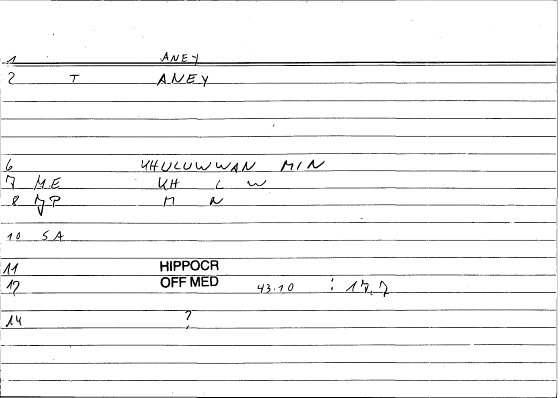 1 ANEY
2 T ANEY
6 KHULUWWAN MIN
7 ME KH L W
8 JP M N
10 SA
11 HIPPOCR
12 OFF MED 43.10 :
14 ?